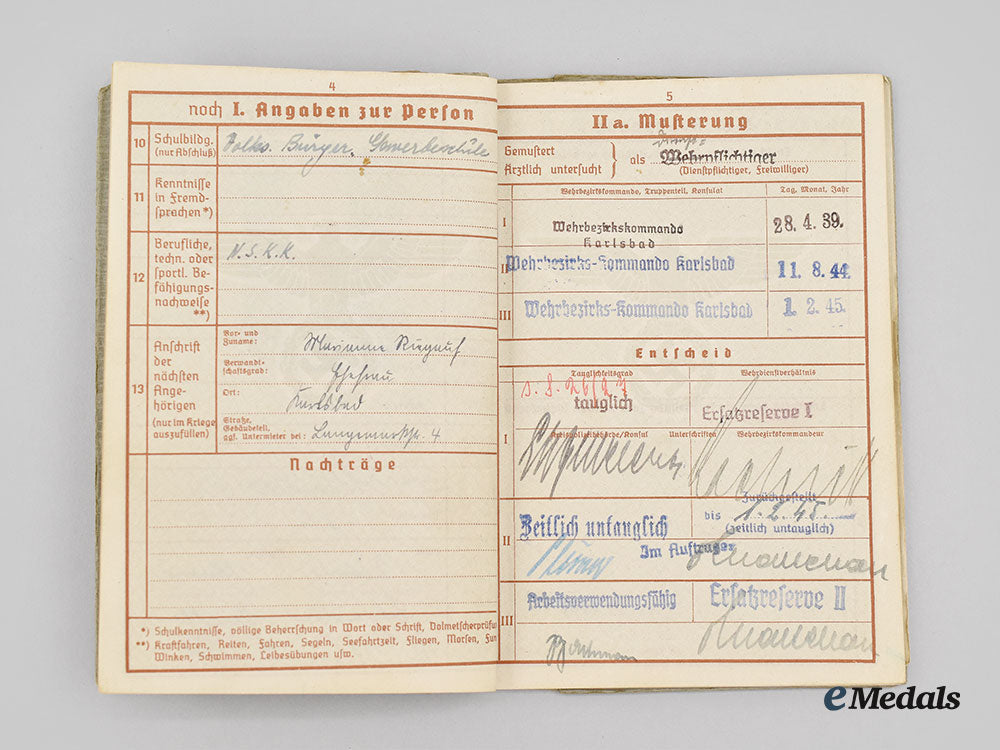 4
noch I. Angaben zur Person
10 Schulbildg. (nur Abschluß)
Volks. Bürger. Gewerbeschule
11 Kenntnisse in Fremd-
sprachen *)
12 Berufliche, techn. oder sportl. Be-
fähigungs-
nachweise **)
N.S.K.K.
13 Anschrift der nächsten Ange-
hörigen
(nur im Kriege auszufüllen)
Vor- und Zuname: Marianne
Verwandt-
schaftsgrad: Ehefrau
Ort: Karlsbad
Straße, Gebäudeteil, ggf. Untermieter bei: 4
Nachträge
*) Schulkenntnisse, völlige Beherrschung in Wort oder Schrift, Dolmetscherprüfu
**) Kraftfahren, Reiten, Fahren, Segeln, Seefahrtzeit, Fliegen, Morsen, Fun
Winken, Schwimmen, Leibesübungen usw.
5
IIa. Musterung
Gemustert
Ärztlich untersucht } als Wehrpflichtiger
(Dienstpflichtiger, Freiwilliger)
Wehrbezirkskommando, Truppenteil, Konsulat
Tag, Monat, Jahr
I
Wehrbezirkskommando
Karlsbad
28. 4. 39.
II
Wehrbezirks-Kommando Karlsbad
11. 8. 44
III
Wehrbezirks-Kommando Karlsbad
1. 2. 45.
Entscheid
Tauglichkeitsgrad
Wehrdienstverhältnis
s. S. 26/27
tauglich
Ersatzreserve I
I
Unterschriften
Wehrbezirkskommandeur
II
Zeitlich untauglich
Zurückgestellt
bis 1.2.45.
(zeitlich untauglich)
Im Auftrage
III
Arbeitsverwendungsfähig
Ersatzreserve II
eMedals